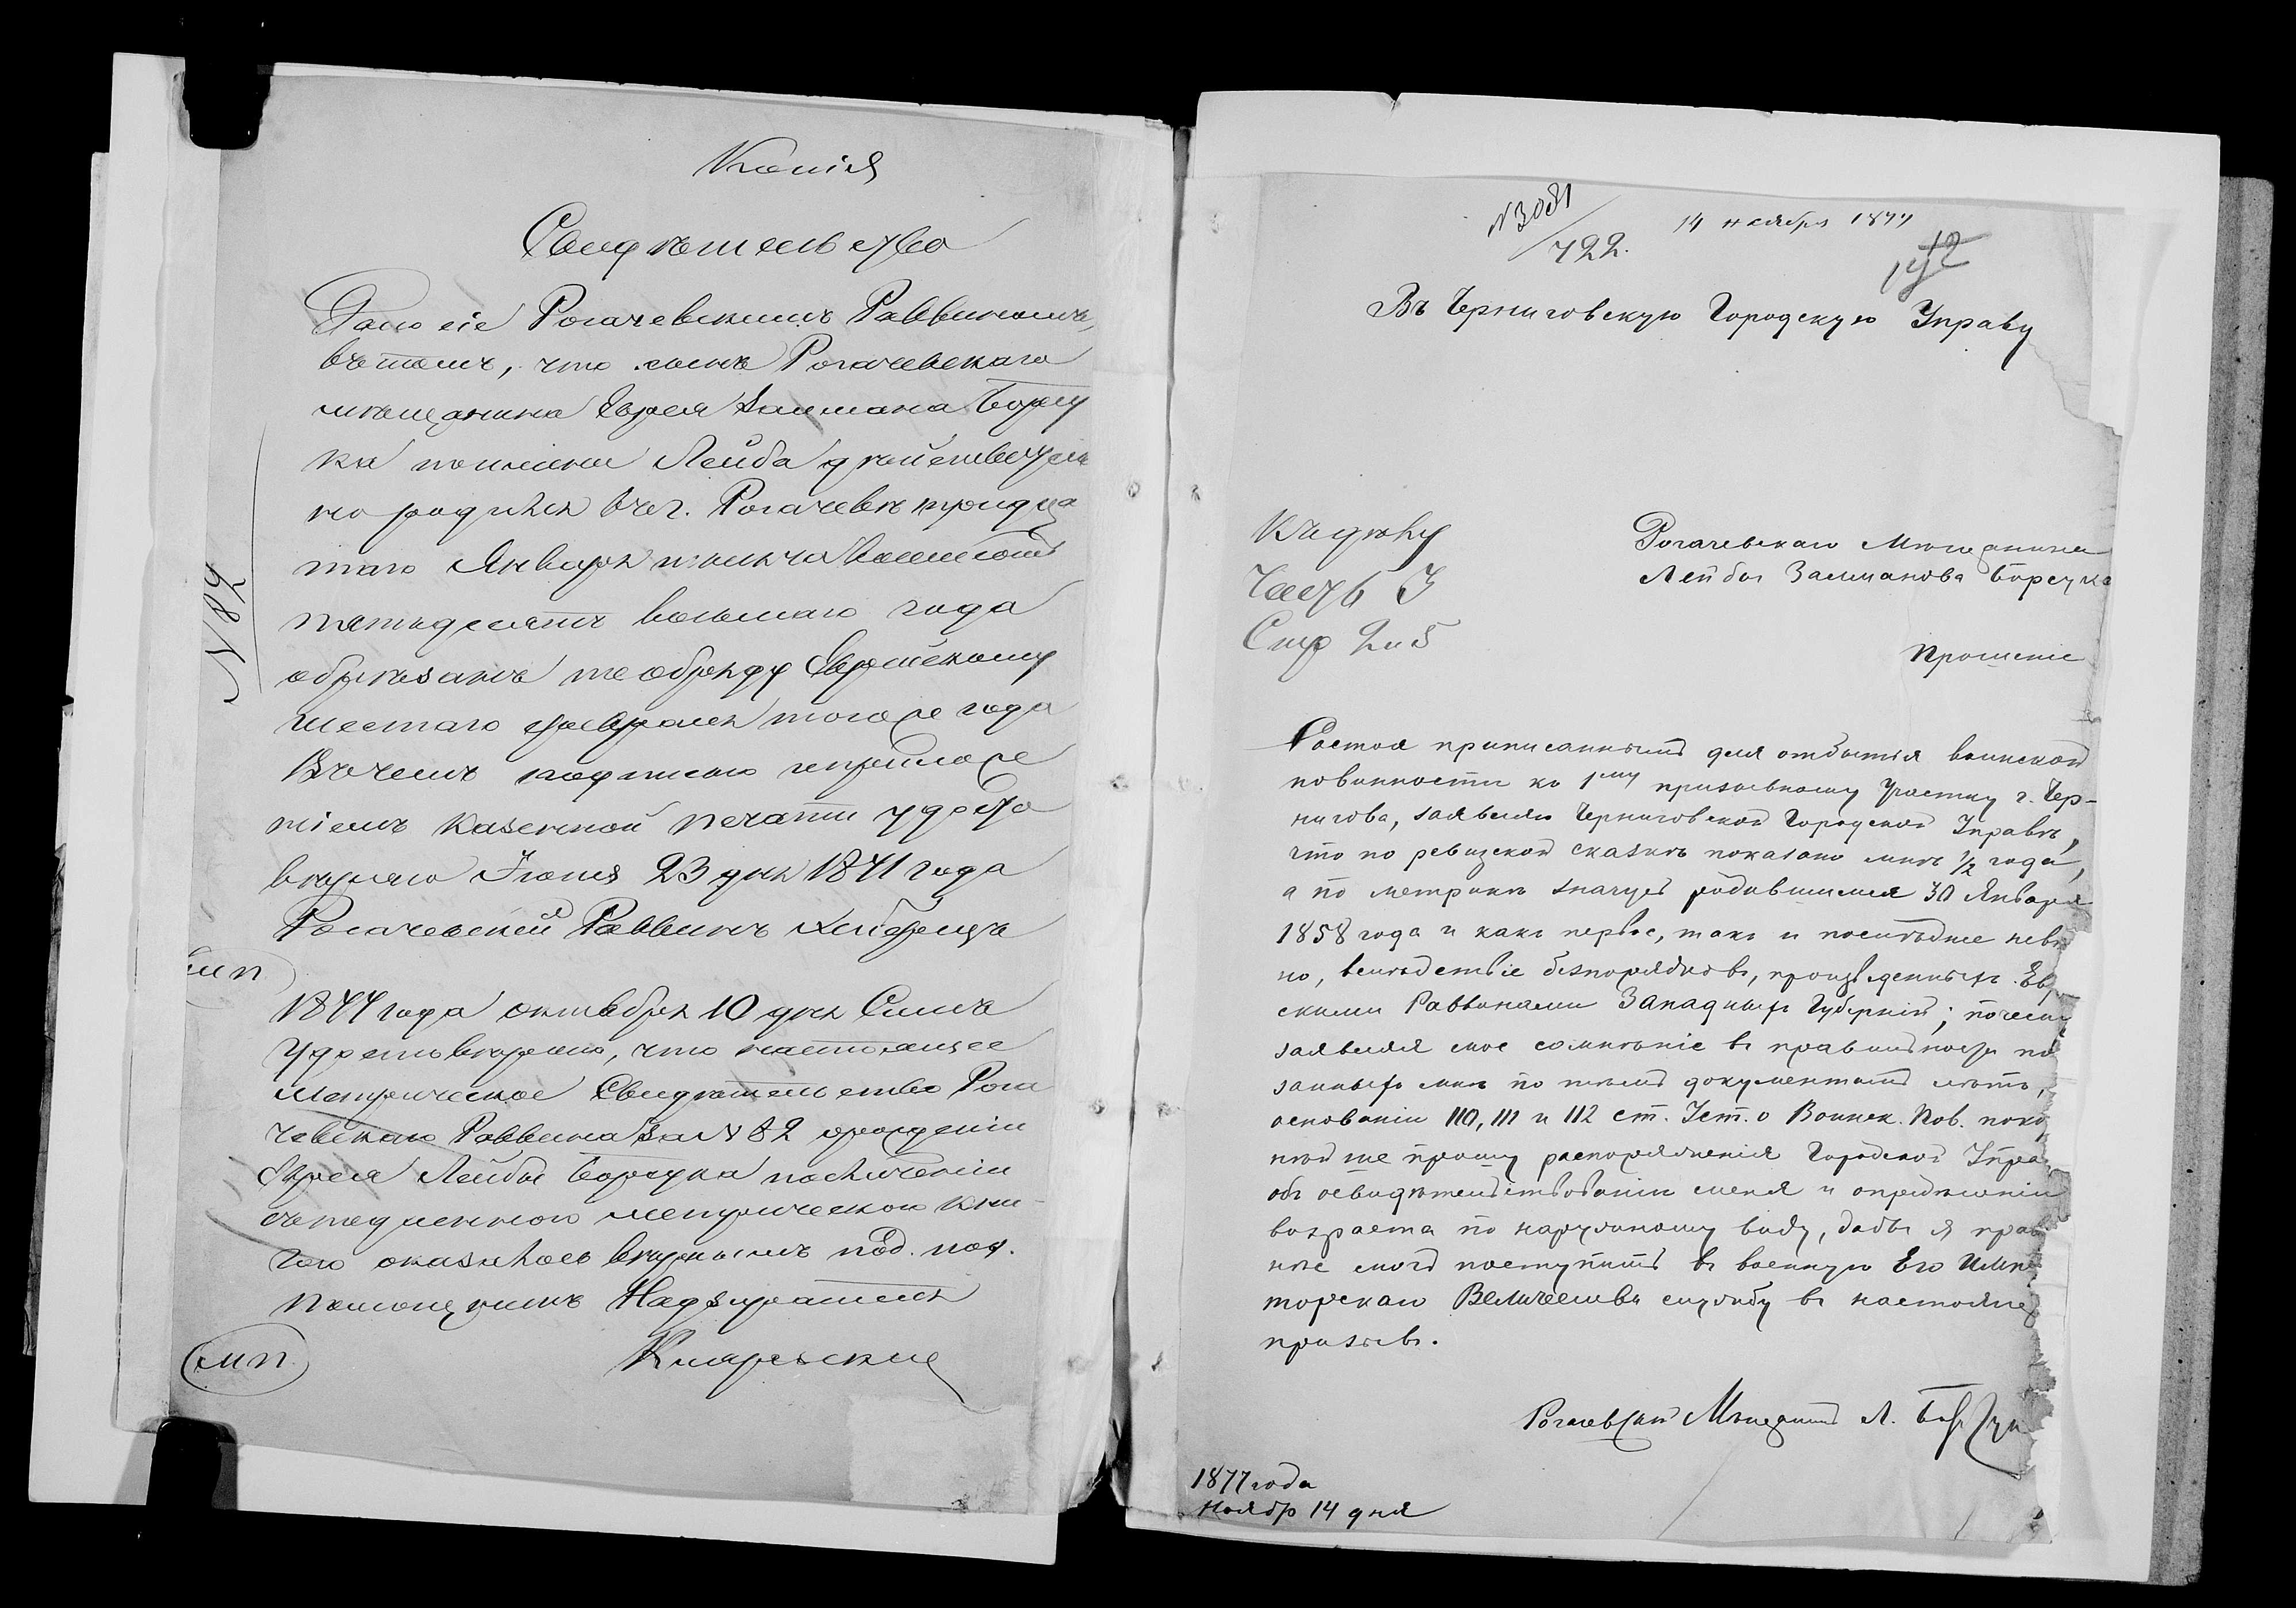 Копія
Свидѣтельство
Дано сіе Рогачевскимъ Раввиномъ,
въ томъ, что сынъ Рогачевскаго
мѣщанина Еврея Залмана Борсу
ка по имени Лейба дѣйствитель
но родился въ г. Рогачевѣ тридца
таго Января тысяча восемсотъ
пятьдесятъ восьмаго года
обрѣзанъ по обряду Еврейскому
шестаго февраля того же года
Въ чемъ подписью и приложе
ніемъ казенной печати удосто
вѣряю Іюня 23 дня 1871 года
Рогачевскій Раввинъ
М П
1877 года октября 10 дня Симъ
удостовѣряю, что настоящее
Метрическое Свидѣтельство Рога
чевскаго Раввина за № 82 о рожденіи
Еврея Лейбы Борсука по сличеніи
съ подлинною метрическою кни-
гою оказалось вѣрнымъ под. под.
Помощникъ Надзирателя
М П
№ 82
№ 3081
722.
14 ноября 1877
12
Въ Черниговскую Городскую Управу
Къ дѣлу
Часть 3
Стр 2 и 5
Рогачевскаго Мѣщанина
Лейбы Залманова Борсука
Прошеніе
Состоя приписаннымъ для отбытія воинской
повинности ко 1му призывному Участку г. Чер-
нигова, заявляю Черниговской Городской Управѣ,
что по ревизской сказкѣ показано мнѣ 1/2 года,
а по метрикѣ значусь родившимся 30 Января
1858 года и какъ первое, такъ и послѣднее невѣр
но, вслѣдствіе безпорядковъ, произведенныхъ Ев
скими Раввинами Западныхъ Губерній; почему
заявляя мое сомнѣніе въ правильности пока
занныхъ мнѣ по тѣмъ документамъ лѣтъ,
основаніи 110, 111 и 112 ст. Уст. о Воинск. Пов. поко
нѣйше прошу распоряженія Городской Упра
объ освидѣтельствованіи меня и опредѣленіи
возраста по наружному виду, дабы я прав
но могъ поступить въ военную Его Импе
торскаго Величества службу въ настоящ
призывъ.
Рогачевскій Мѣщанинъ Л. Борсукъ
1877 года
Ноябр 14 дня